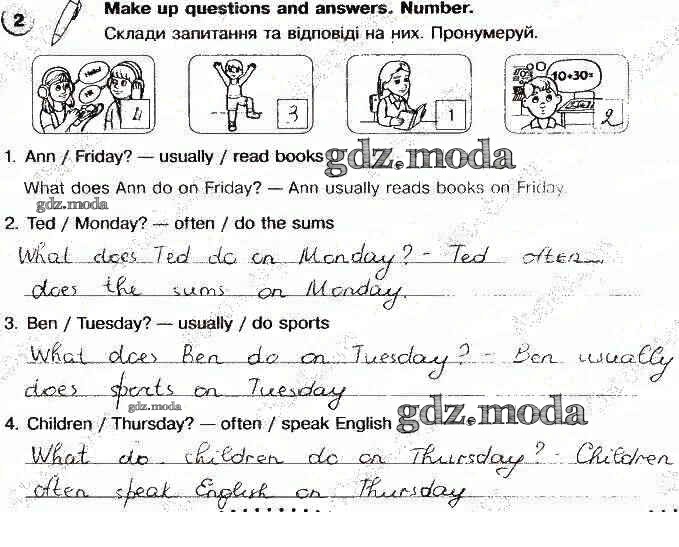 2
Make up questions and answers. Number.
Склади запитання та відповіді на них. Пронумеруй.
Hello!
Hi
10+30=
4
3
1
2
1. Ann / Friday? — usually / read books gdz.moda
What does Ann do on Friday? — Ann usually reads books on Friday.
gdz.moda
2. Ted / Monday? — often / do the sums
What does Ted do on Monday? - Ted often
does the sums on Monday.
3. Ben / Tuesday? — usually / do sports
What does Ben do on Tuesday? - Ben usually
does sports on Tuesday
gdz.moda
4. Children / Thursday? — often / speak English gdz.moda
What do children do on Thursday? - Children
often speak English on Thursday